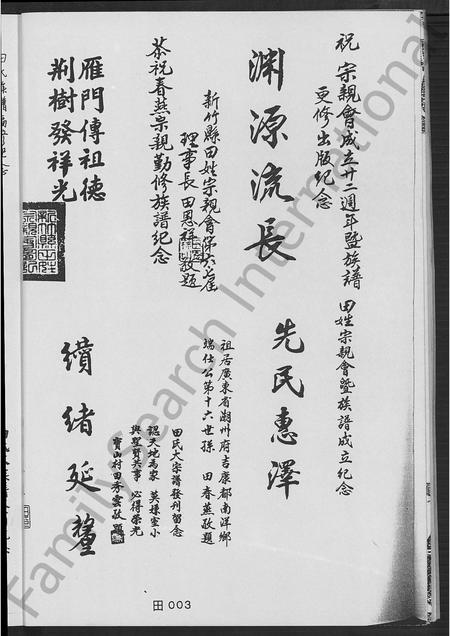 祝 宗親會成立廿二週年暨族譜
更修出版紀念
渊源流長
新竹縣田姓宗親會第六七屆
理事長 田恩 敬題
恭祝春燕宗親勤修族譜紀念
雁門傳祖德
荆樹發祥光
田姓宗親會暨族譜成立紀念
先民惠澤
祖居廣東省潮州府吉康都南洋鄉
瑞仕公第十六世孫 田春燕敬題
田氏大宗譜發刊留念
認天地為家 莫嫌室小
與聖賢共事 必得榮光
寶山村田秀雲敬題
纘緒延釐
田 003
FamilySearch International